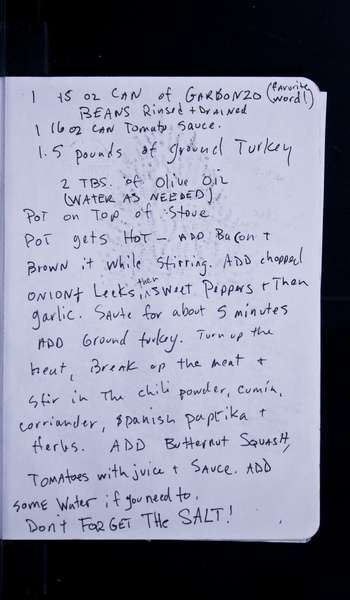 1 15 oz CAN of GARBONZO (favorite word!)
BEANS Rinsed + Drained
1 16 oz CAN Tomato Sauce.
1.5 pounds of ground Turkey
2 TBS. of Olive OiL
(WATER AS NEEDED)
POT on TOP of Stove
POT gets HOT - ADD Bacon +
BROWN it while Stirring. ADD chopped
ONION + Leeks then in sweet Peppers + Then
garlic. Saute for about 5 minutes
ADD Ground turkey. Turn up the
heat, Break up the meat +
Stir in The chili powder, cumin,
corriander, spanish paprika +
Herbs. ADD Butternut SQUASH,
TOMATOES with juice + SAUCE. ADD
some Water if you need to.
Don't FORGET THE SALT!